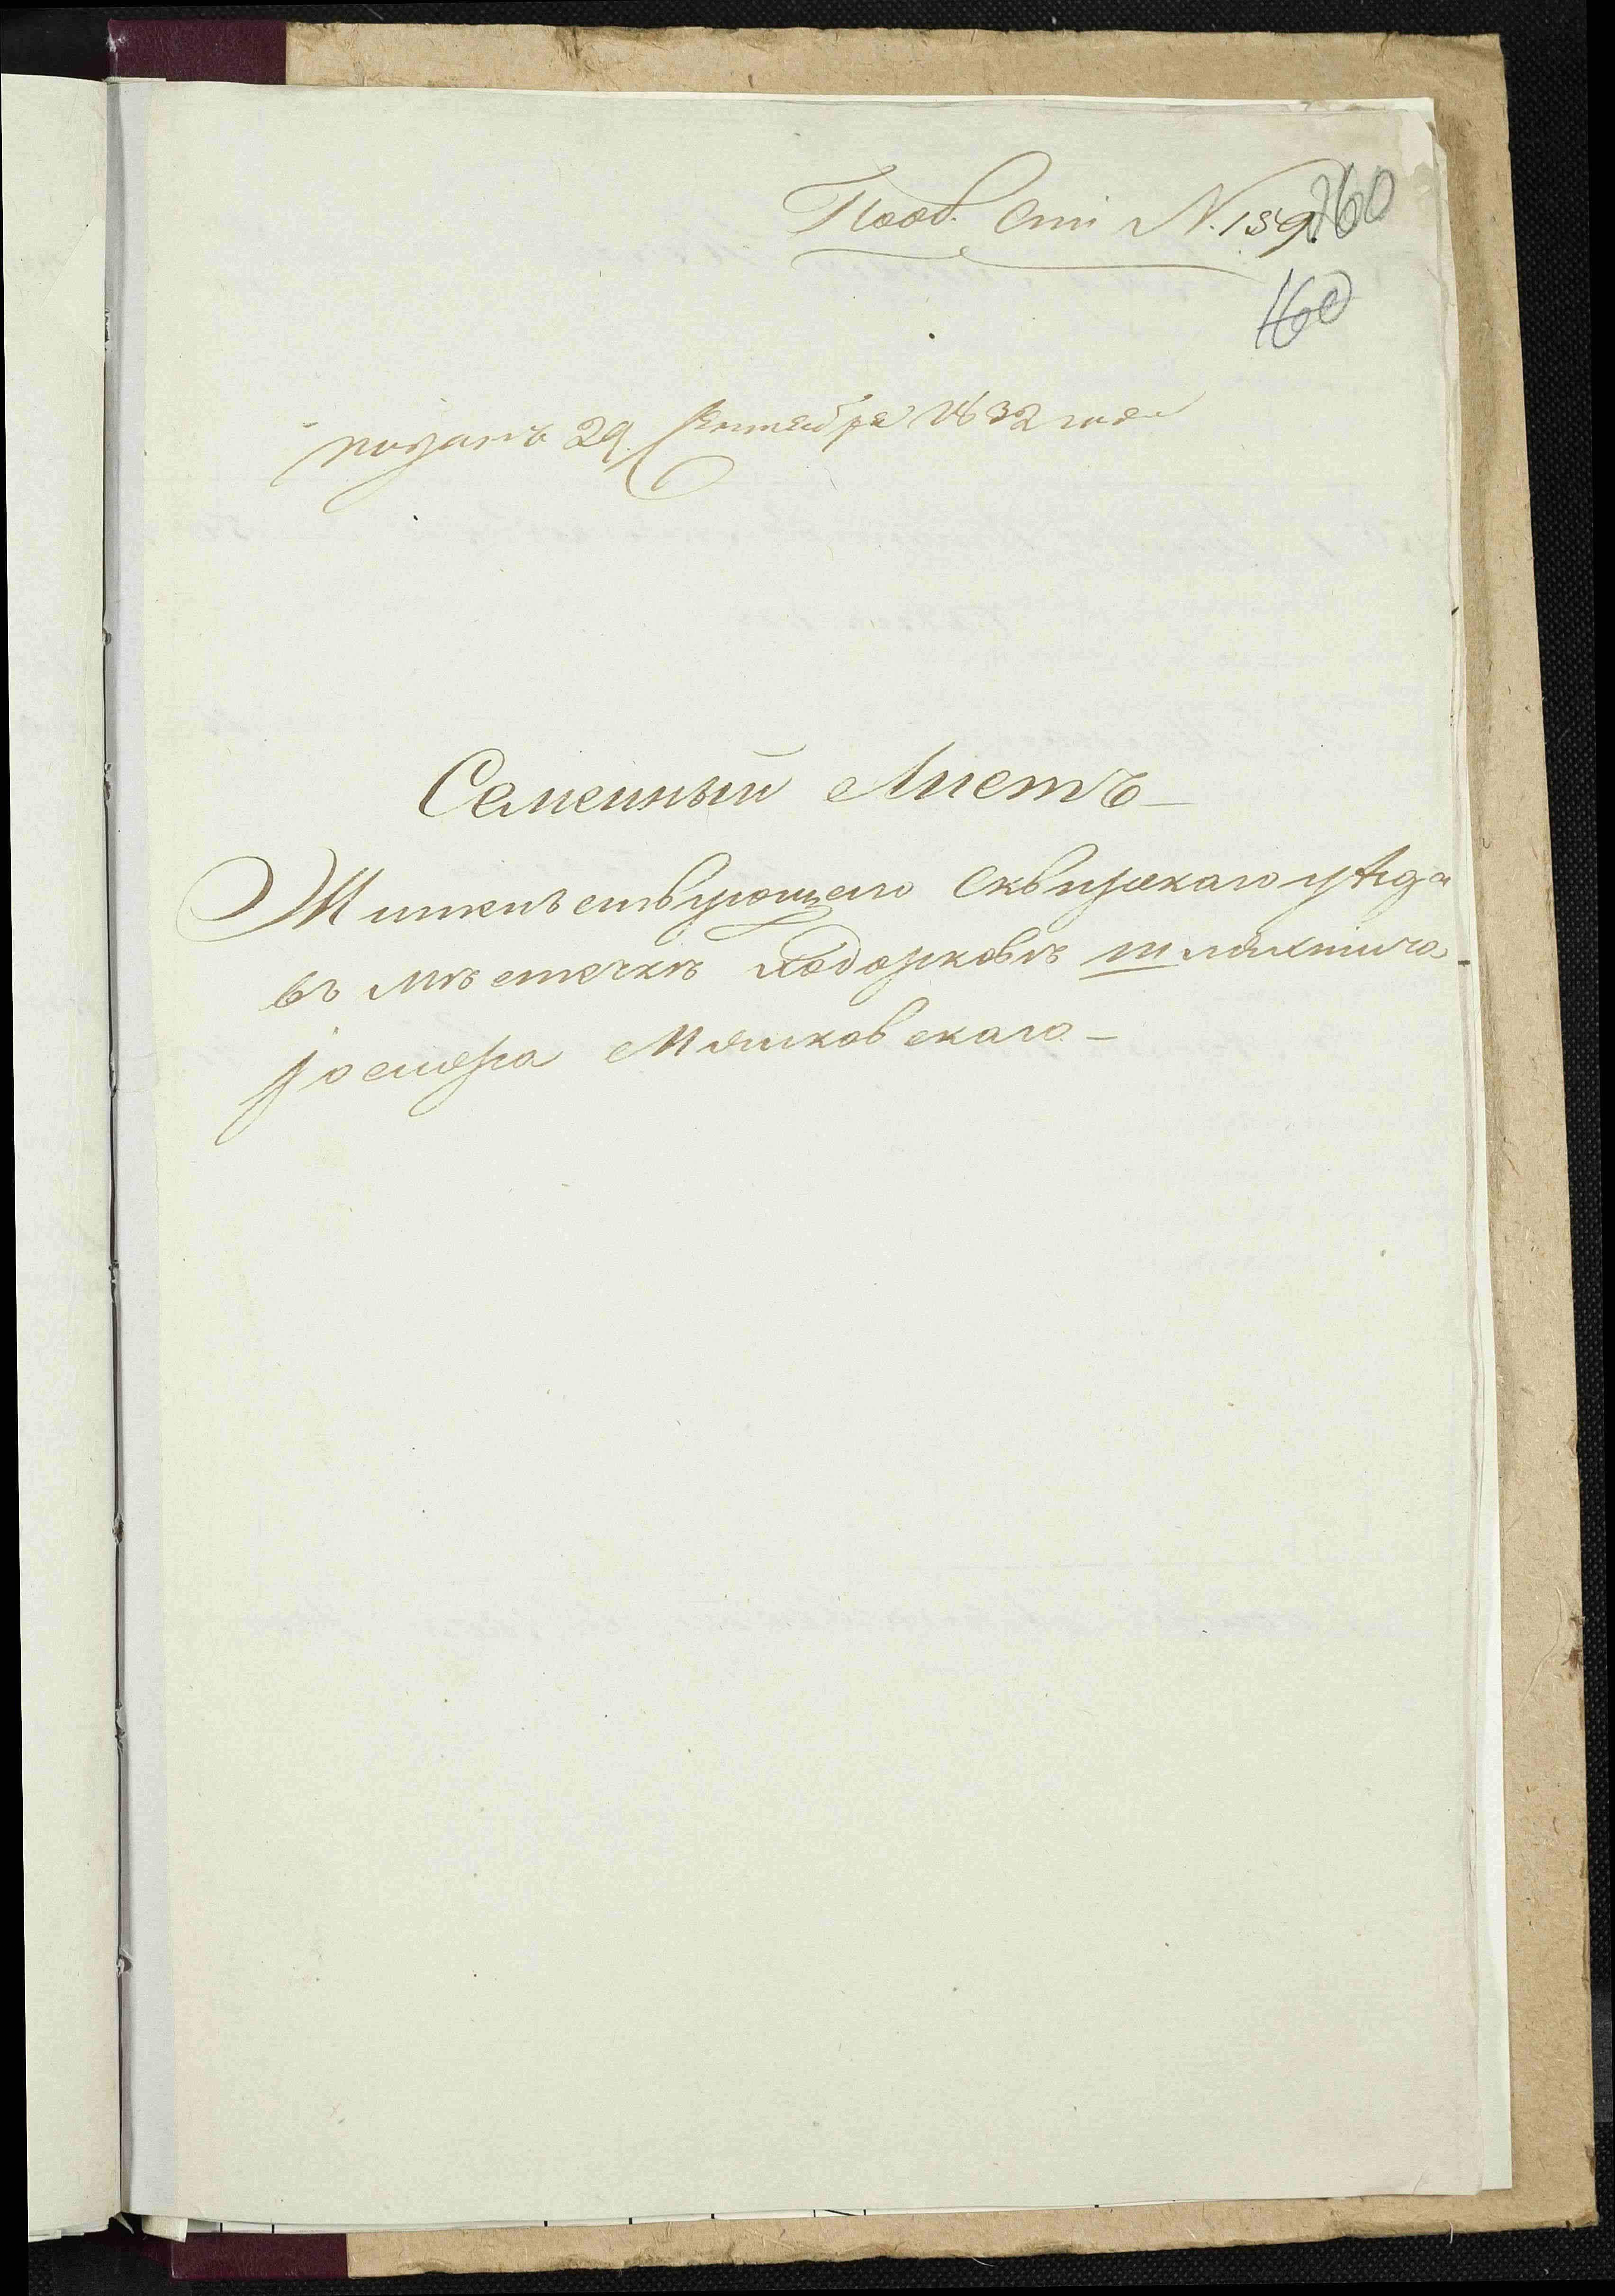 Пооб. Сті N. 159. 260
160
поданъ 29. Сентября 1832 года
Семейный Листъ
Жительствующаго Сквирскаго уѣзда
въ мѣстечкѣ Ходорковѣ шляхтича
Іосифа Мяшковскаго